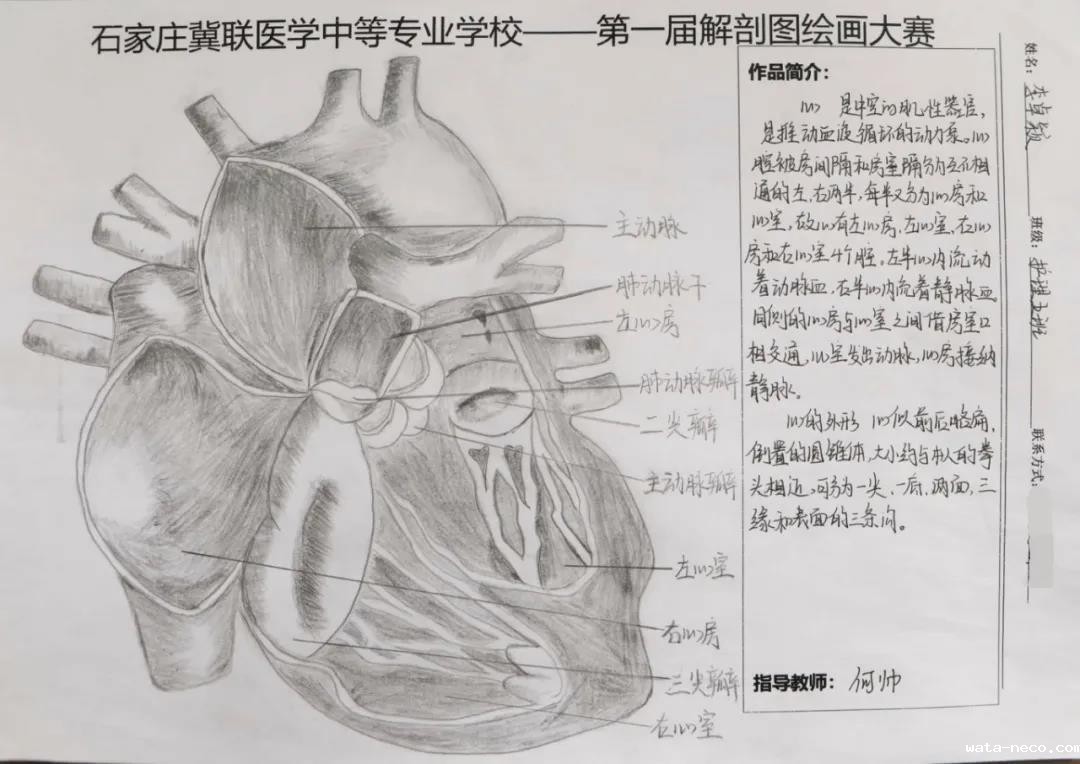 石家庄冀联医学中等专业学校——第一届解剖图绘画大赛
主动脉
肺动脉干
左心房
肺动脉瓣
二尖瓣
主动脉瓣
左心室
右心房
三尖瓣
右心室
作品简介：
心 是中空的肌性器官，
是推动血液循环的动力泵。心
腔被房间隔和房室隔分为互不相
通的左、右两半，每半又分为心房和
心室，故心有左心房、左心室、右心
房和右心室4个腔。左半心内流动
着动脉血，右半心内流着静脉血。
同侧的心房与心室之间借房室口
相交通，心室发出动脉，心房接纳
静脉。
心的外形 心似前后略扁，
倒置的圆锥体，大小约与本人的拳
头相近，可分为一尖、一底、两面，三
缘和表面的三条沟。
指导教师：何帅
姓名：李卓颖
班级：护理五班
联系方式：
wata-neco.com